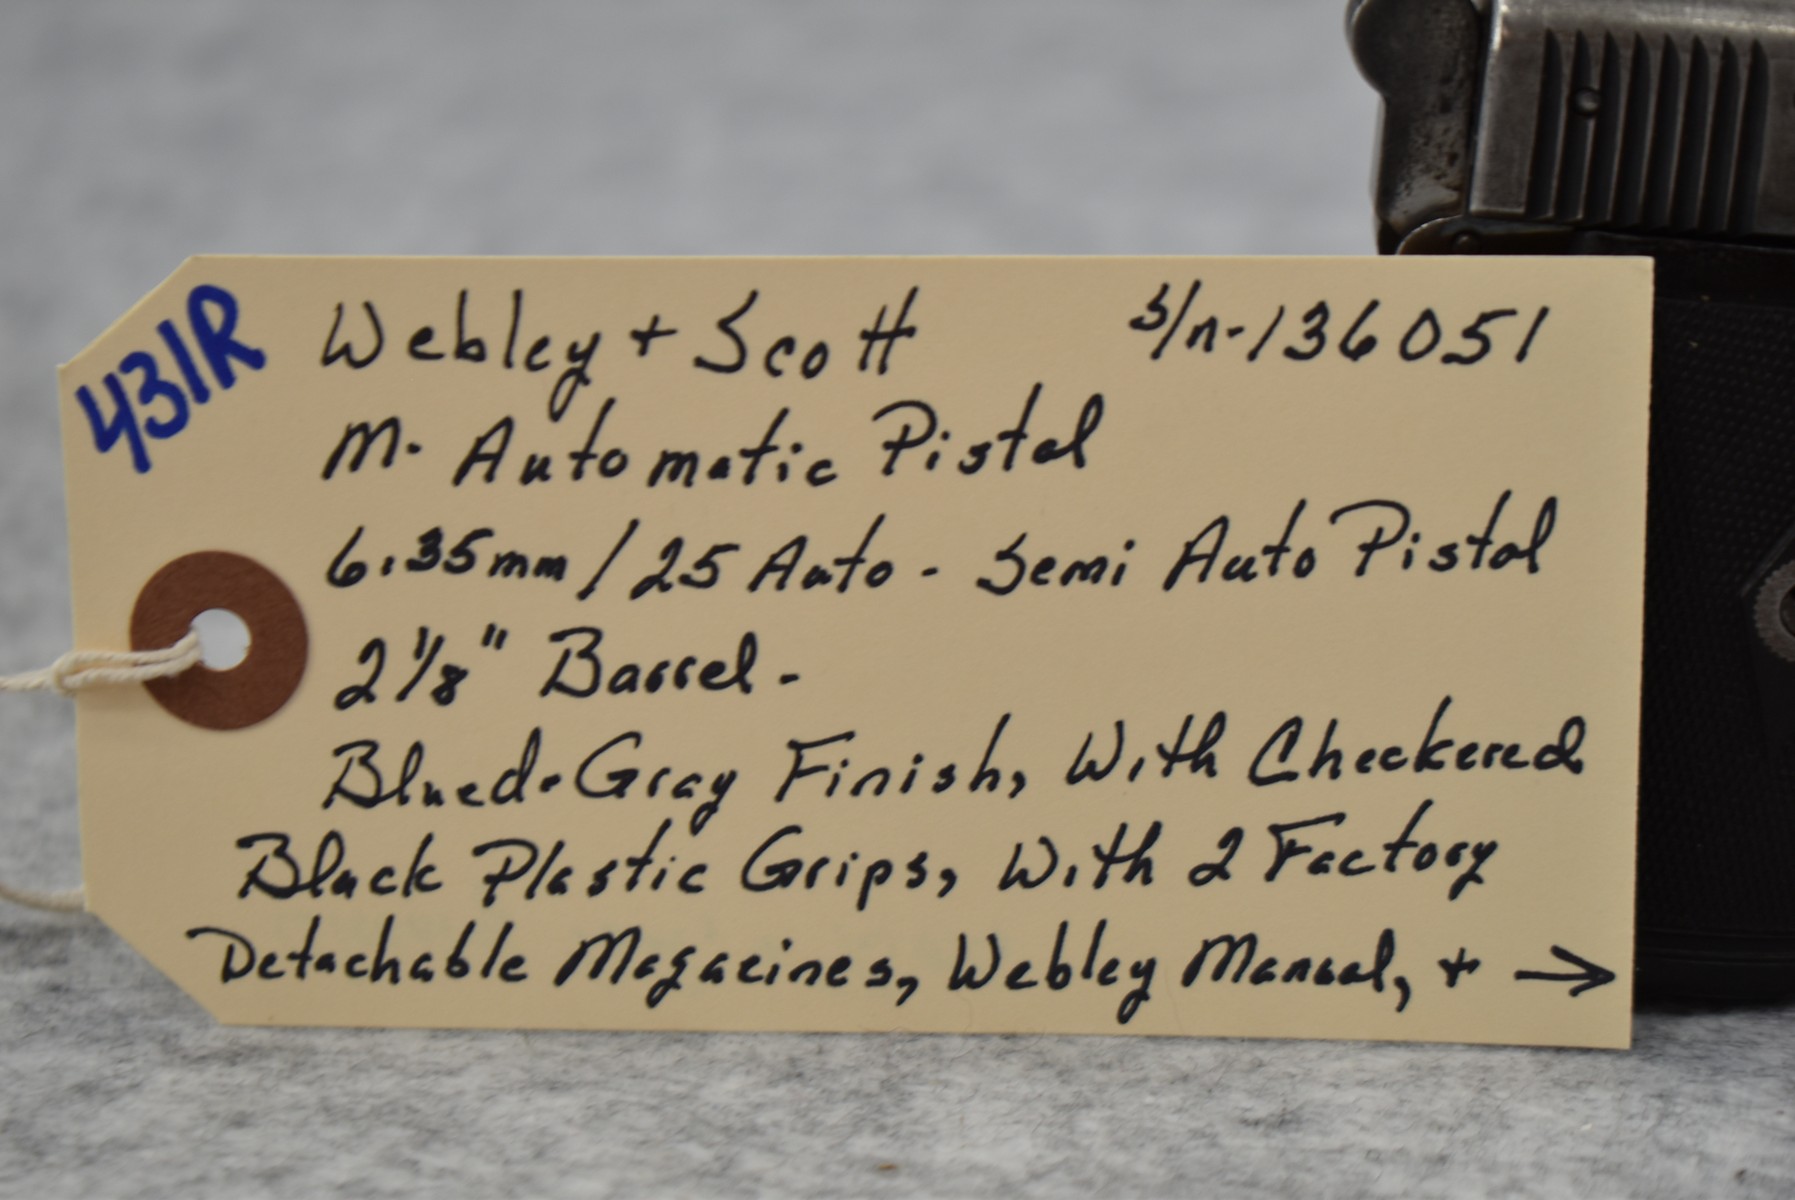 431R
Webley + Scott s/n-136051
M. Automatic Pistol
6.35mm / 25 Auto - Semi Auto Pistol
2 1/8" Barrel -
Blued-Gray Finish, With Checkered
Black Plastic Grips, With 2 Factory
Detachable Magazines, Webley Manual, + →